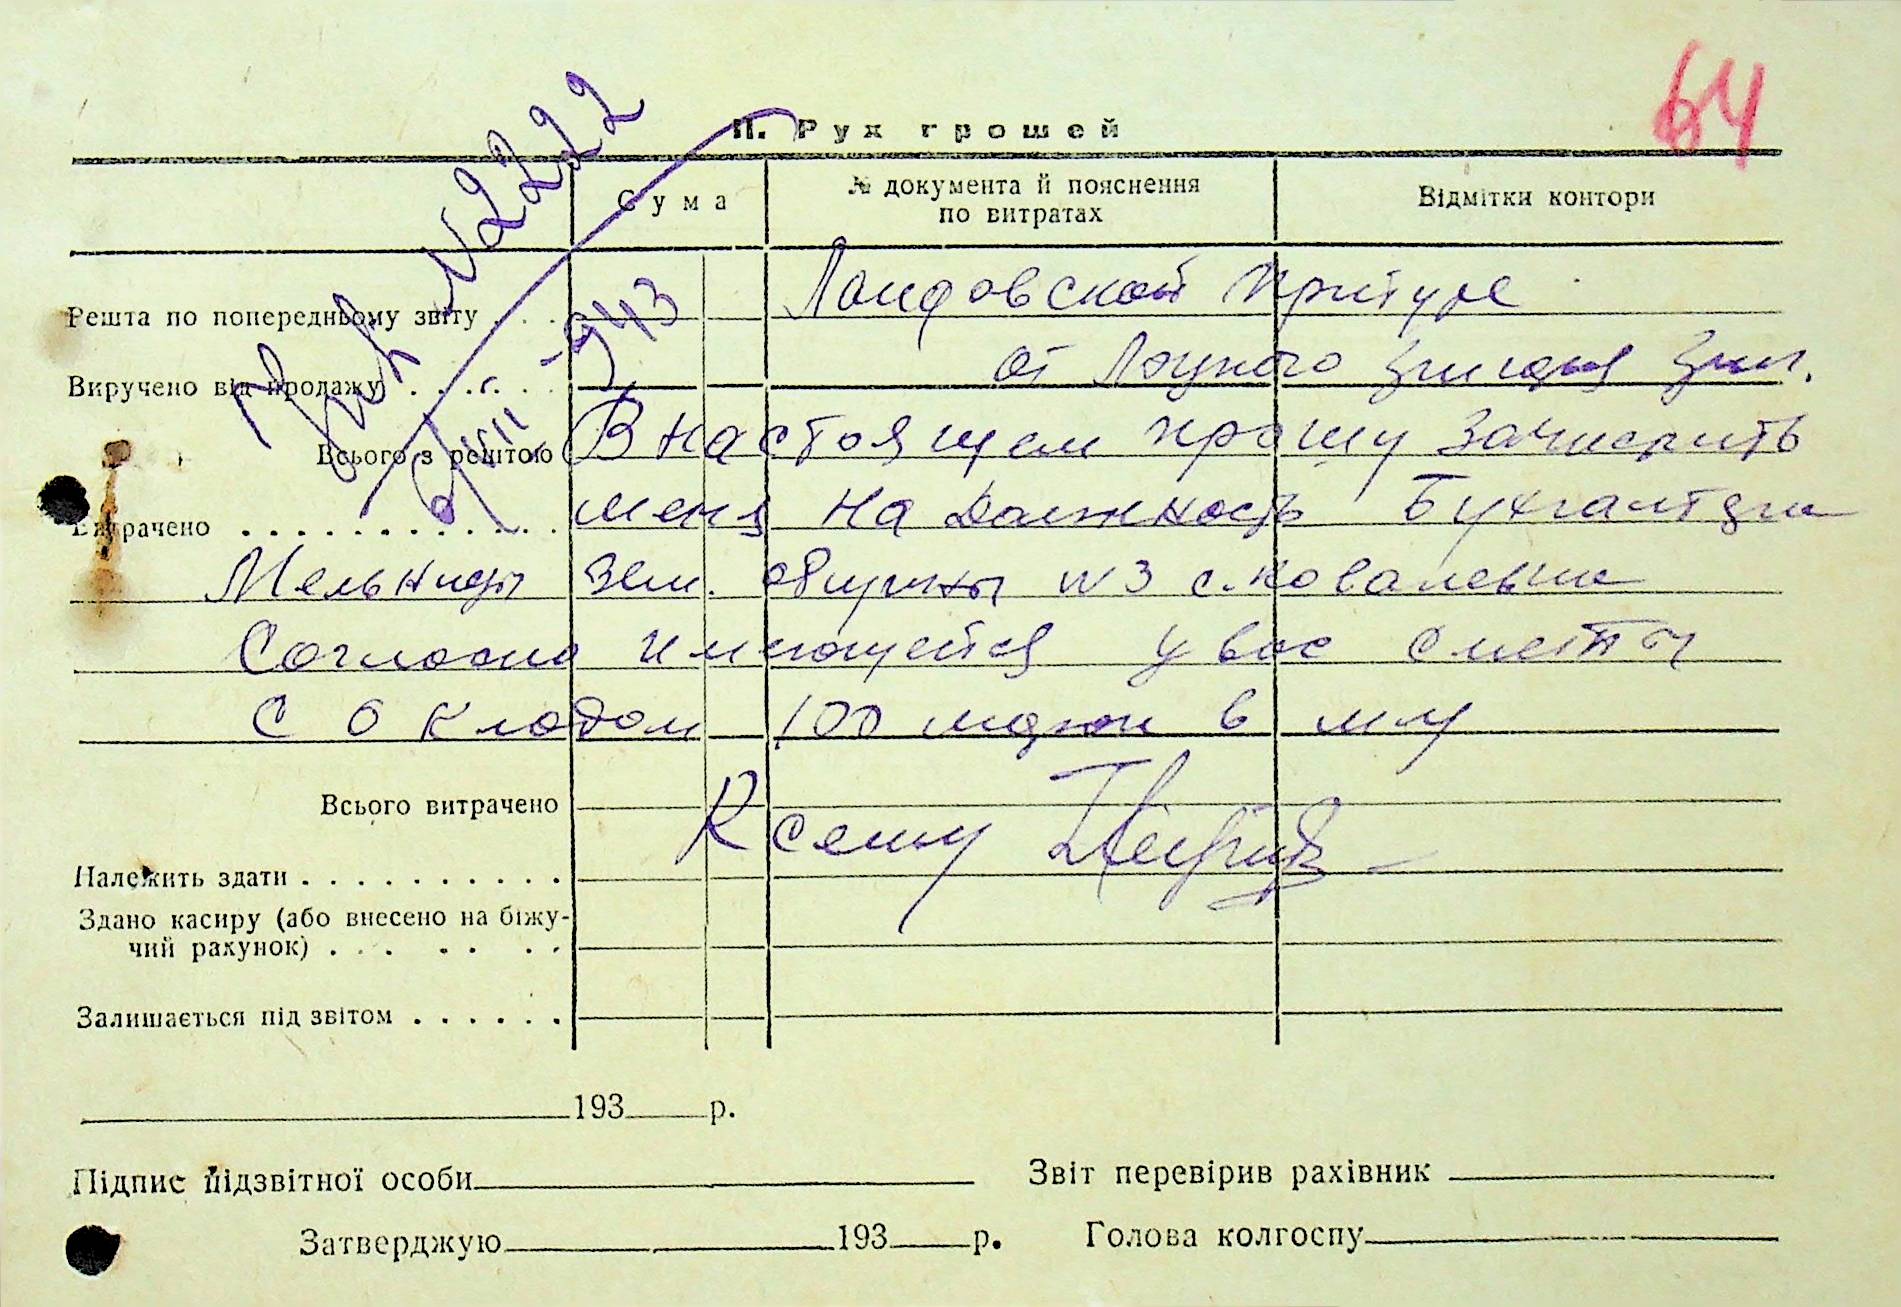 64
II. Рух грошей
Сума
№ документа й пояснення
по витратах
Відмітки контори
N 222
943
Решта по попередньому звіту . . .
от Зин.
Виручено від продажу . . . . .
В настоящем прошу зачислить
Всього з рештою
меня на должность Бухгалтера
Витрачено . . . . . . . . . . . .
Мельницы Зем. общины N 3 с. Ковалевки
Согласно имеющейся у вас сметы
с окладом 100 марок в м-ц
Всього витрачено
К сему
Належить здати . . . . . . . . . .
Здано касиру (або внесено на біжу-
чий рахунок) . . . . . . .
Залишається під звітом . . . . . .
193 р.
Підпис підзвітної особи
Звіт перевірив рахівник
Затверджую 193 р.
Голова колгоспу